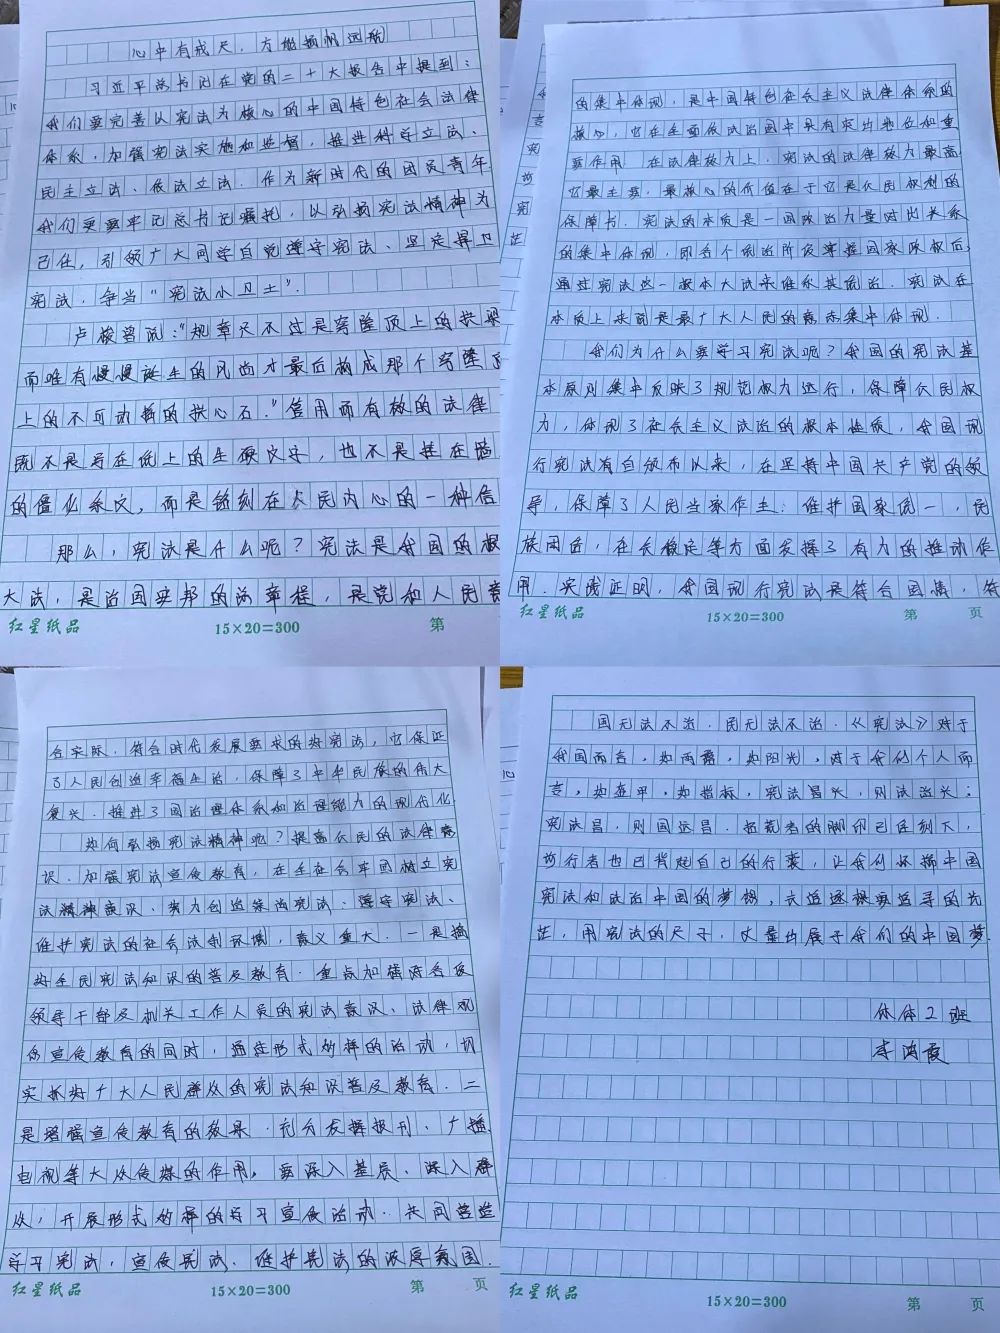 心中有戒尺，方能扬帆远航
习近平总书记在党的二十大报告中提到：
我们要完善以宪法为核心的中国特色社会法律
体系，加强宪法实施和监督，推进科学立法、
民主立法、依法立法．作为新时代的团员青年
我们更要牢记总书记嘱托，以弘扬宪法精神为
己任，引领广大同学自觉遵守宪法、坚定捍卫
宪法，争当“宪法小卫士”．
卢梭曾说：“规章只不过是穹隆顶上的拱梁
而唯有慢慢诞生的风尚才最后构成那个穹隆顶
上的不可动摇的拱心石．”管用而有效的法律
既不是写在纸上的生硬文字，也不是挂在墙
的僵化条文，而是铭刻在人民内心的一种信
那么，宪法是什么呢？宪法是我国的根
大法，是治国安邦的总章程，是党和人民意
红星纸品
15×20=300
第
的集中体现，是中国特色社会主义法律体系的
核心，它在全面依法治国中具有突出地位和重
要作用 在法律效力上，宪法的法律效力最高
它最主要，最核心的价值在于它是公民权利的
保障书．宪法的本质是一国政治力量对比关系
的集中体现，即各个统治阶级掌握国家政权后
通过宪法这一根本大法来维系其统治．宪法在
本质上来说是最广大人民的意志集中体现．
我们为什么要学习宪法呢？我国的宪法基
本原则集中反映了规范权力运行，保障公民权
力，体现了社会主义法治的根本性质，我国现
行宪法有自颁布以来，在坚持中国共产党的领
导，保障了人民当家作主：维护国家统一，民
族团结，社会稳定等方面发挥了有力的推动作
用．实践证明，我国现行宪法是符合国情，符
红星纸品
15×20=300
第 页
合实际，符合时代发展要求的好宪法，它保证
了人民创造幸福生活，保障了中华民族的伟大
复兴．推进了国治理体系和治理能力的现代化
如何弘扬宪法精神呢？提高公民的法律意
识．加强宪法宣传教育，在全社会牢固树立宪
法精神意识、努力创造崇尚宪法、遵守宪法、
维护宪法的社会法制环境，意义重大．一是搞
好全民宪法知识的普及教育．重点加强对各级
领导干部及机关工作人员的宪法意识、法律观
念宣传教育的同时，通过形式多样的活动，切
实抓好广大人民群众的宪法知识普及教育．二
是增强宣传教育的效果．充分发挥报刊、广播
电视等大众传媒的作用，要深入基层、深入群
众，开展形式多样的学习宣传活动．共同营造
学习宪法，宣传宪法、维护宪法的浓厚氛围．
红星纸品
15×20=300
第 页
国无法不治．民无法不治．《宪法》对于
我国而言，如雨露，如阳光，对于我们个人而
言，如盔甲，如指标，宪法昌兴，则法治兴；
宪法昌，则国运昌．拓荒者的脚印已经刻下，
前行者也已背起自己的行囊，让我们怀揣中国
宪法和法治中国的梦想，去追逐根要追寻的光
芒，用宪法的尺子，丈量出属于我们的中国梦
休体2班
李鸿霞
红星纸品
15×20=300
第 页